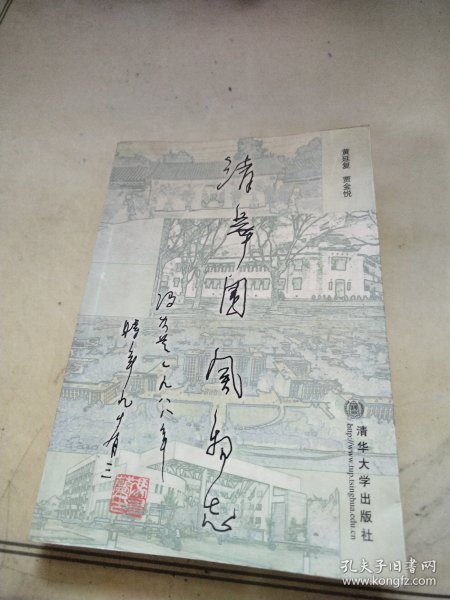 黄延复 贾金悦
清华园风物志
冯友兰一九八八年
时年九十有三
清华大学出版社
http://www.tup.tsinghua.edu.cn
孔夫子旧书网
www.kongfz.com